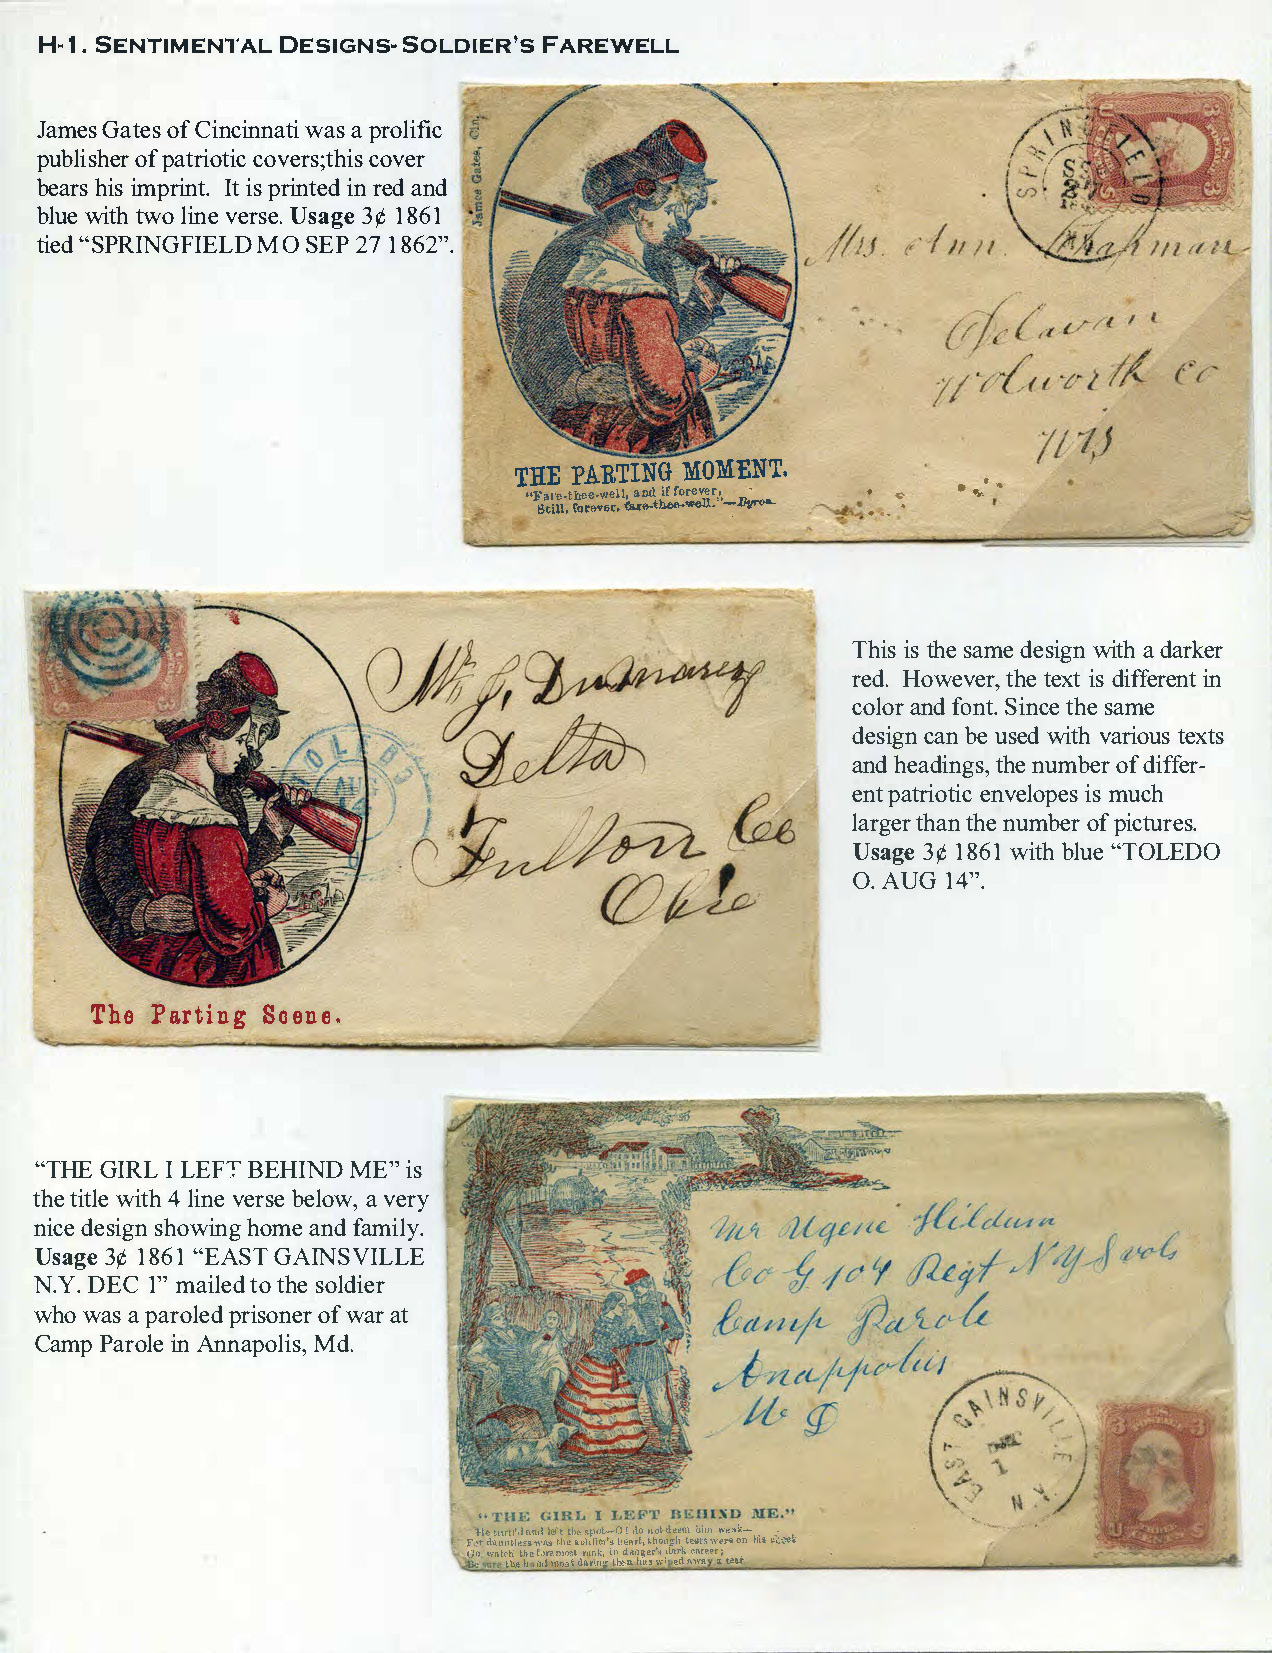 H-1. SENTIMENTAL DESIGNS- SOLDIER'S FAREWELL
James Gates of Cincinnati was a prolific
publisher of patriotic covers;this cover
bears his imprint. It is printed in red and
blue with two line verse. Usage 3¢ 1861
tied “SPRINGFIELD MO SEP 27 1862”.
James Gates, Cin.
SPRINGFIELD
Mrs. Ann Chapman
Delavan
Wolworth Co
Wis
THE PARTING MOMENT.
“Fare-thee-well, and if forever,
Still, forever, fare-thee-well.”—Byron
TOLEDO
Mr J.
Delta
Fulton Co
Ohio
The Parting Scene.
This is the same design with a darker
red. However, the text is different in
color and font. Since the same
design can be used with various texts
and headings, the number of differ-
ent patriotic envelopes is much
larger than the number of pictures.
Usage 3¢ 1861 with blue “TOLEDO
O. AUG 14”.
“THE GIRL I LEFT BEHIND ME” is
the title with 4 line verse below, a very
nice design showing home and family.
Usage 3¢ 1861 “EAST GAINSVILLE
N.Y. DEC 1” mailed to the soldier
who was a paroled prisoner of war at
Camp Parole in Annapolis, Md.
Mr Ugene Hildum
Co G 104 Regt N Y S vols
Camp Parole
Anappolus
M D
EAST GAINSVILLE N.Y.
DEC
1
3 3
U S
“THE GIRL I LEFT BEHIND ME.”
He turn'd and left the spot—O! do not deem him weak—
For dauntless was the soldier's heart, though tears were on his cheek
Go watch the foremost rank, in danger's dark career;
Be sure the hand most daring then has wiped away a tear